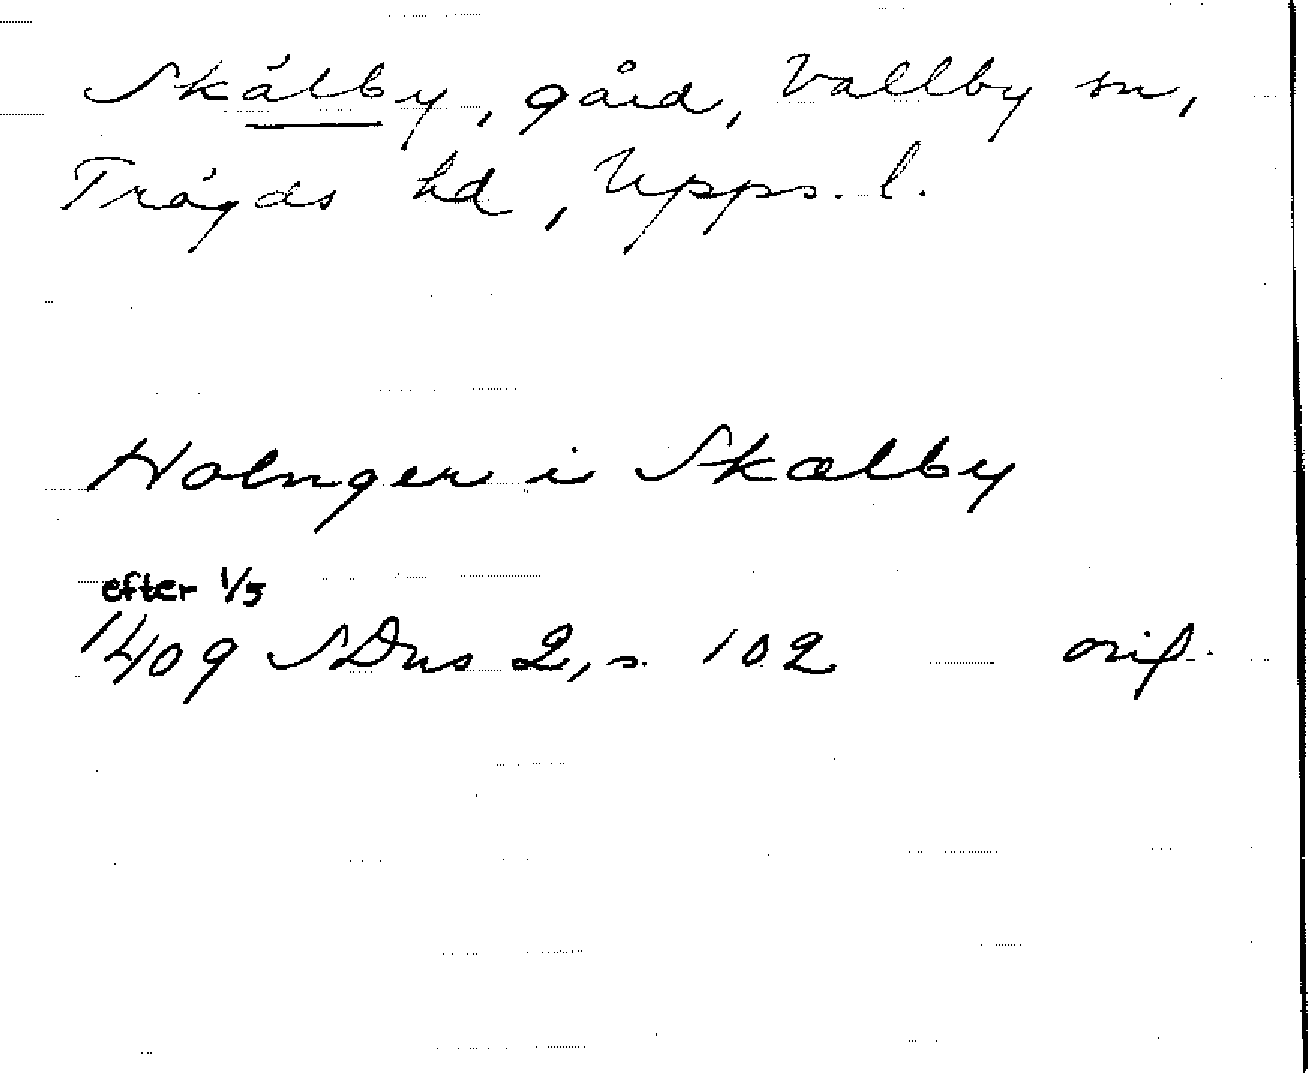 Skälby, gård, Vallby sn,
Trögds hd, Upps. l.
Holmger i Skælby
efter 1/5
1409 SDns 2, s. 102 orig.